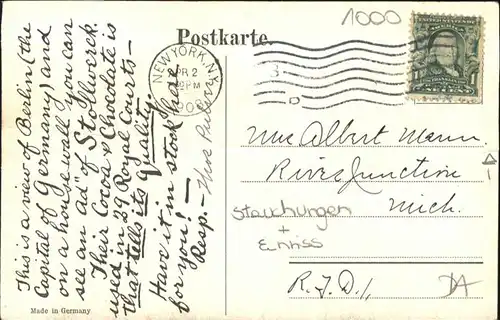 1000
Postkarte
NEW YORK, N.Y.
This is a view of Berlin (the
Capital of Germany) and
on a house wall you can
see an "ad" of Stollwerck.
Their Cocoa & Chocolate is
used in 29 Royal Courts—
that tells its Quality.
Have it in stock
for you! —
Resp. —
Mrs Albert Mann.
Rives Junction
Mich.
R.F.D. 1,
Stauchungen
+
Enriss
Made in Germany